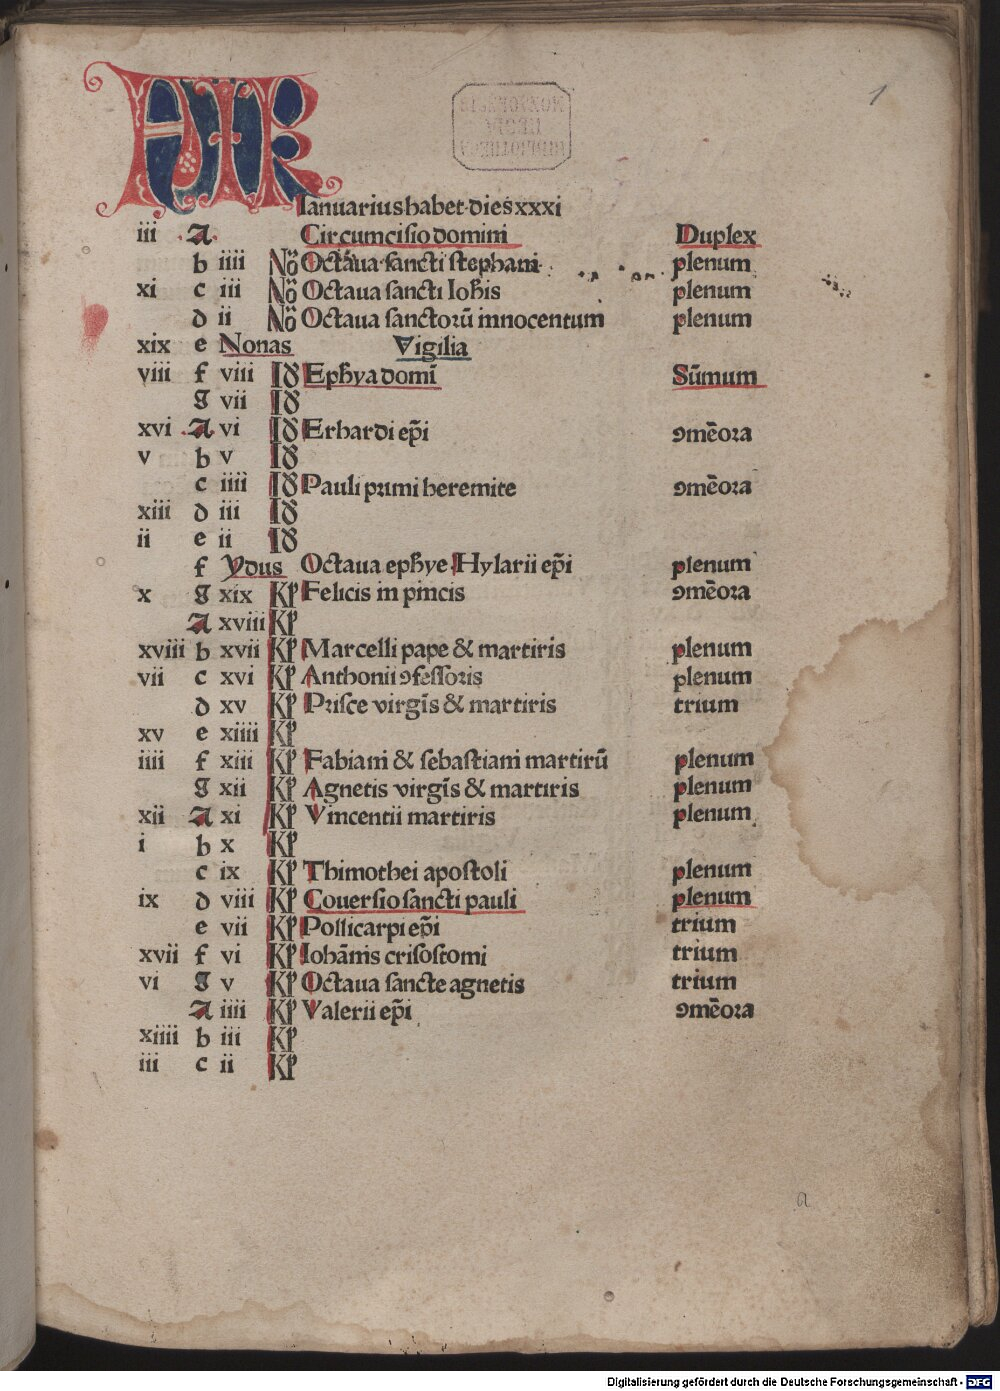 KL
1
BIBLIOTHECA
REGIA
MONACENSIS
Ianuarius habet dies xxxi
iii A Circumcisio domini Duplex
b iiii No Octaua sancti stephani plenum
xi c iii No Octaua sancti Ioh̄is plenum
d ii No Octaua sanctorū innocentum plenum
xix e Nonas Vigilia
viii f viii Id Eph̄ya domī Sūmum
g vii Id
xvi A vi Id Erhardi ep̄i ꝯmēora
v b v Id
c iiii Id Pauli primi heremite ꝯmēora
xiii d iii Id
ii e ii Id
f Ydus Octaua eph̄ye Hylarii ep̄i plenum
x g xix Kl Felicis in pincis ꝯmēora
A xviii Kl
xviii b xvii Kl Marcelli pape & martiris plenum
vii c xvi Kl Anthonii ꝯfessoris plenum
d xv Kl Prisce virgīs & martiris trium
xv e xiiii Kl
iiii f xiii Kl Fabiani & sebastiani martirū plenum
g xii Kl Agnetis virgīs & martiris plenum
xii A xi Kl Vincentii martiris plenum
i b x Kl
c ix Kl Thimothei apostoli plenum
ix d viii Kl Couersio sancti pauli plenum
e vii Kl Pollicarpi ep̄i trium
xvii f vi Kl Iohānis crisostomi trium
vi g v Kl Octaua sancte agnetis trium
A iiii Kl Valerii ep̄i ꝯmēora
xiiii b iii Kl
iii c ii Kl
a
Digitalisierung gefördert durch die Deutsche Forschungsgemeinschaft - DFG